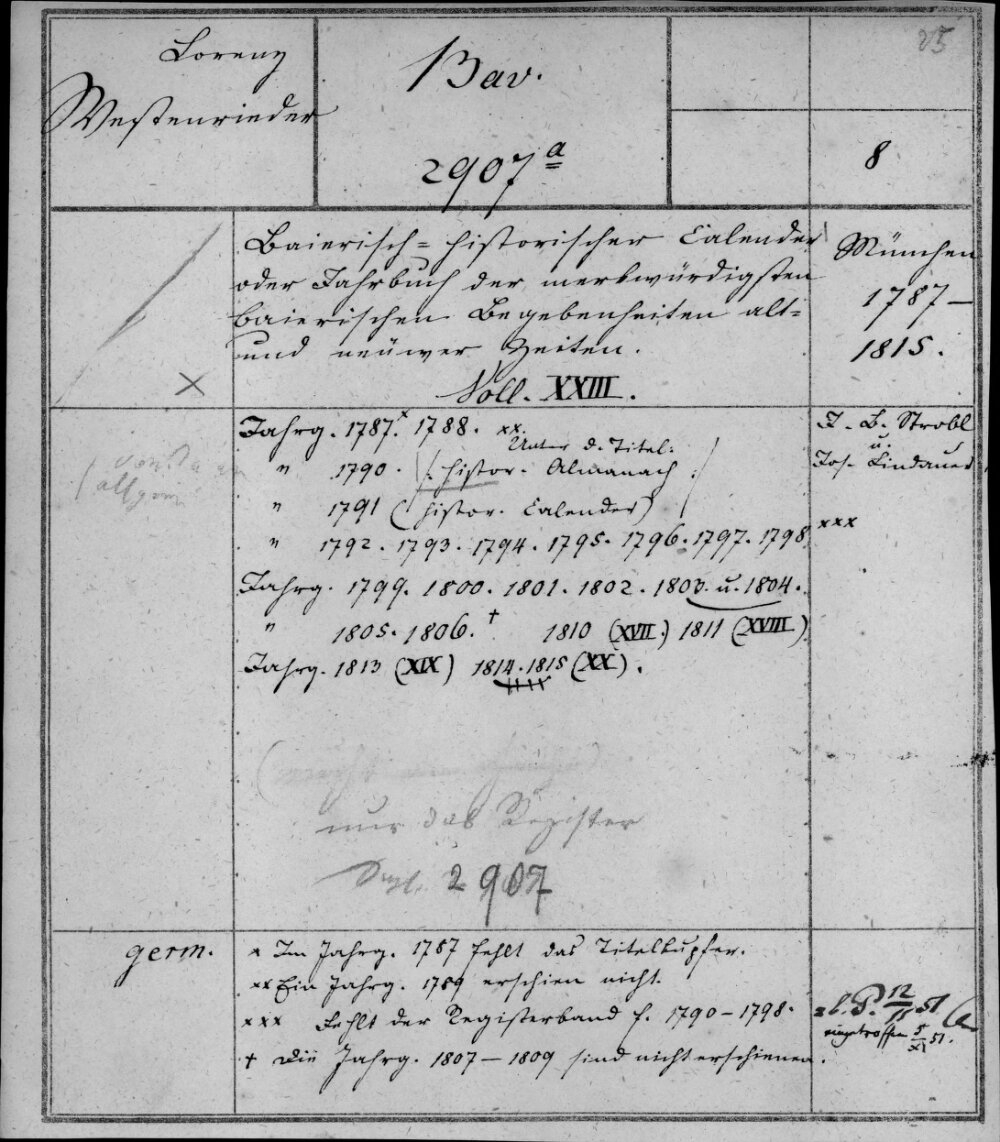 25
Lorenz
Westenrieder
Bav.
2907 a
8
Baierisch-historischer Calender
oder Jahrbuch der merkwürdigsten
baierischen Begebenheiten alt-
und neüwer Zeiten.
Voll. XXIII.
München
1787 –
1815.
×
Jahrg. 1787.× 1788. ××.
Unter d. Titel:
" 1790. (: histor. Almanach :)
" 1791 (histor. Calender)
" 1792. 1793. 1794. 1795. 1796. 1797. 1798 ×××
Jahrg. 1799. 1800. 1801. 1802. 1803. u. 1804.
" 1805. 1806. † 1810 (XVII.) 1811 (XVIII)
Jahrg. 1813 (XIX) 1814. 1815 (XX).
J. B. Strobl
u.
Jos. Lindauer
nur das Register
2907
germ.
× Im Jahrg. 1787 fehlt das Titelkupfer.
×× Ein Jahrg. 1789 erschien nicht.
××× Fehlt der Registerband f. 1790 – 1798.
† Die Jahrg. 1807 – 1809 sind nicht erschienen.
12/11 51
eingetroffen 5/XI 51.